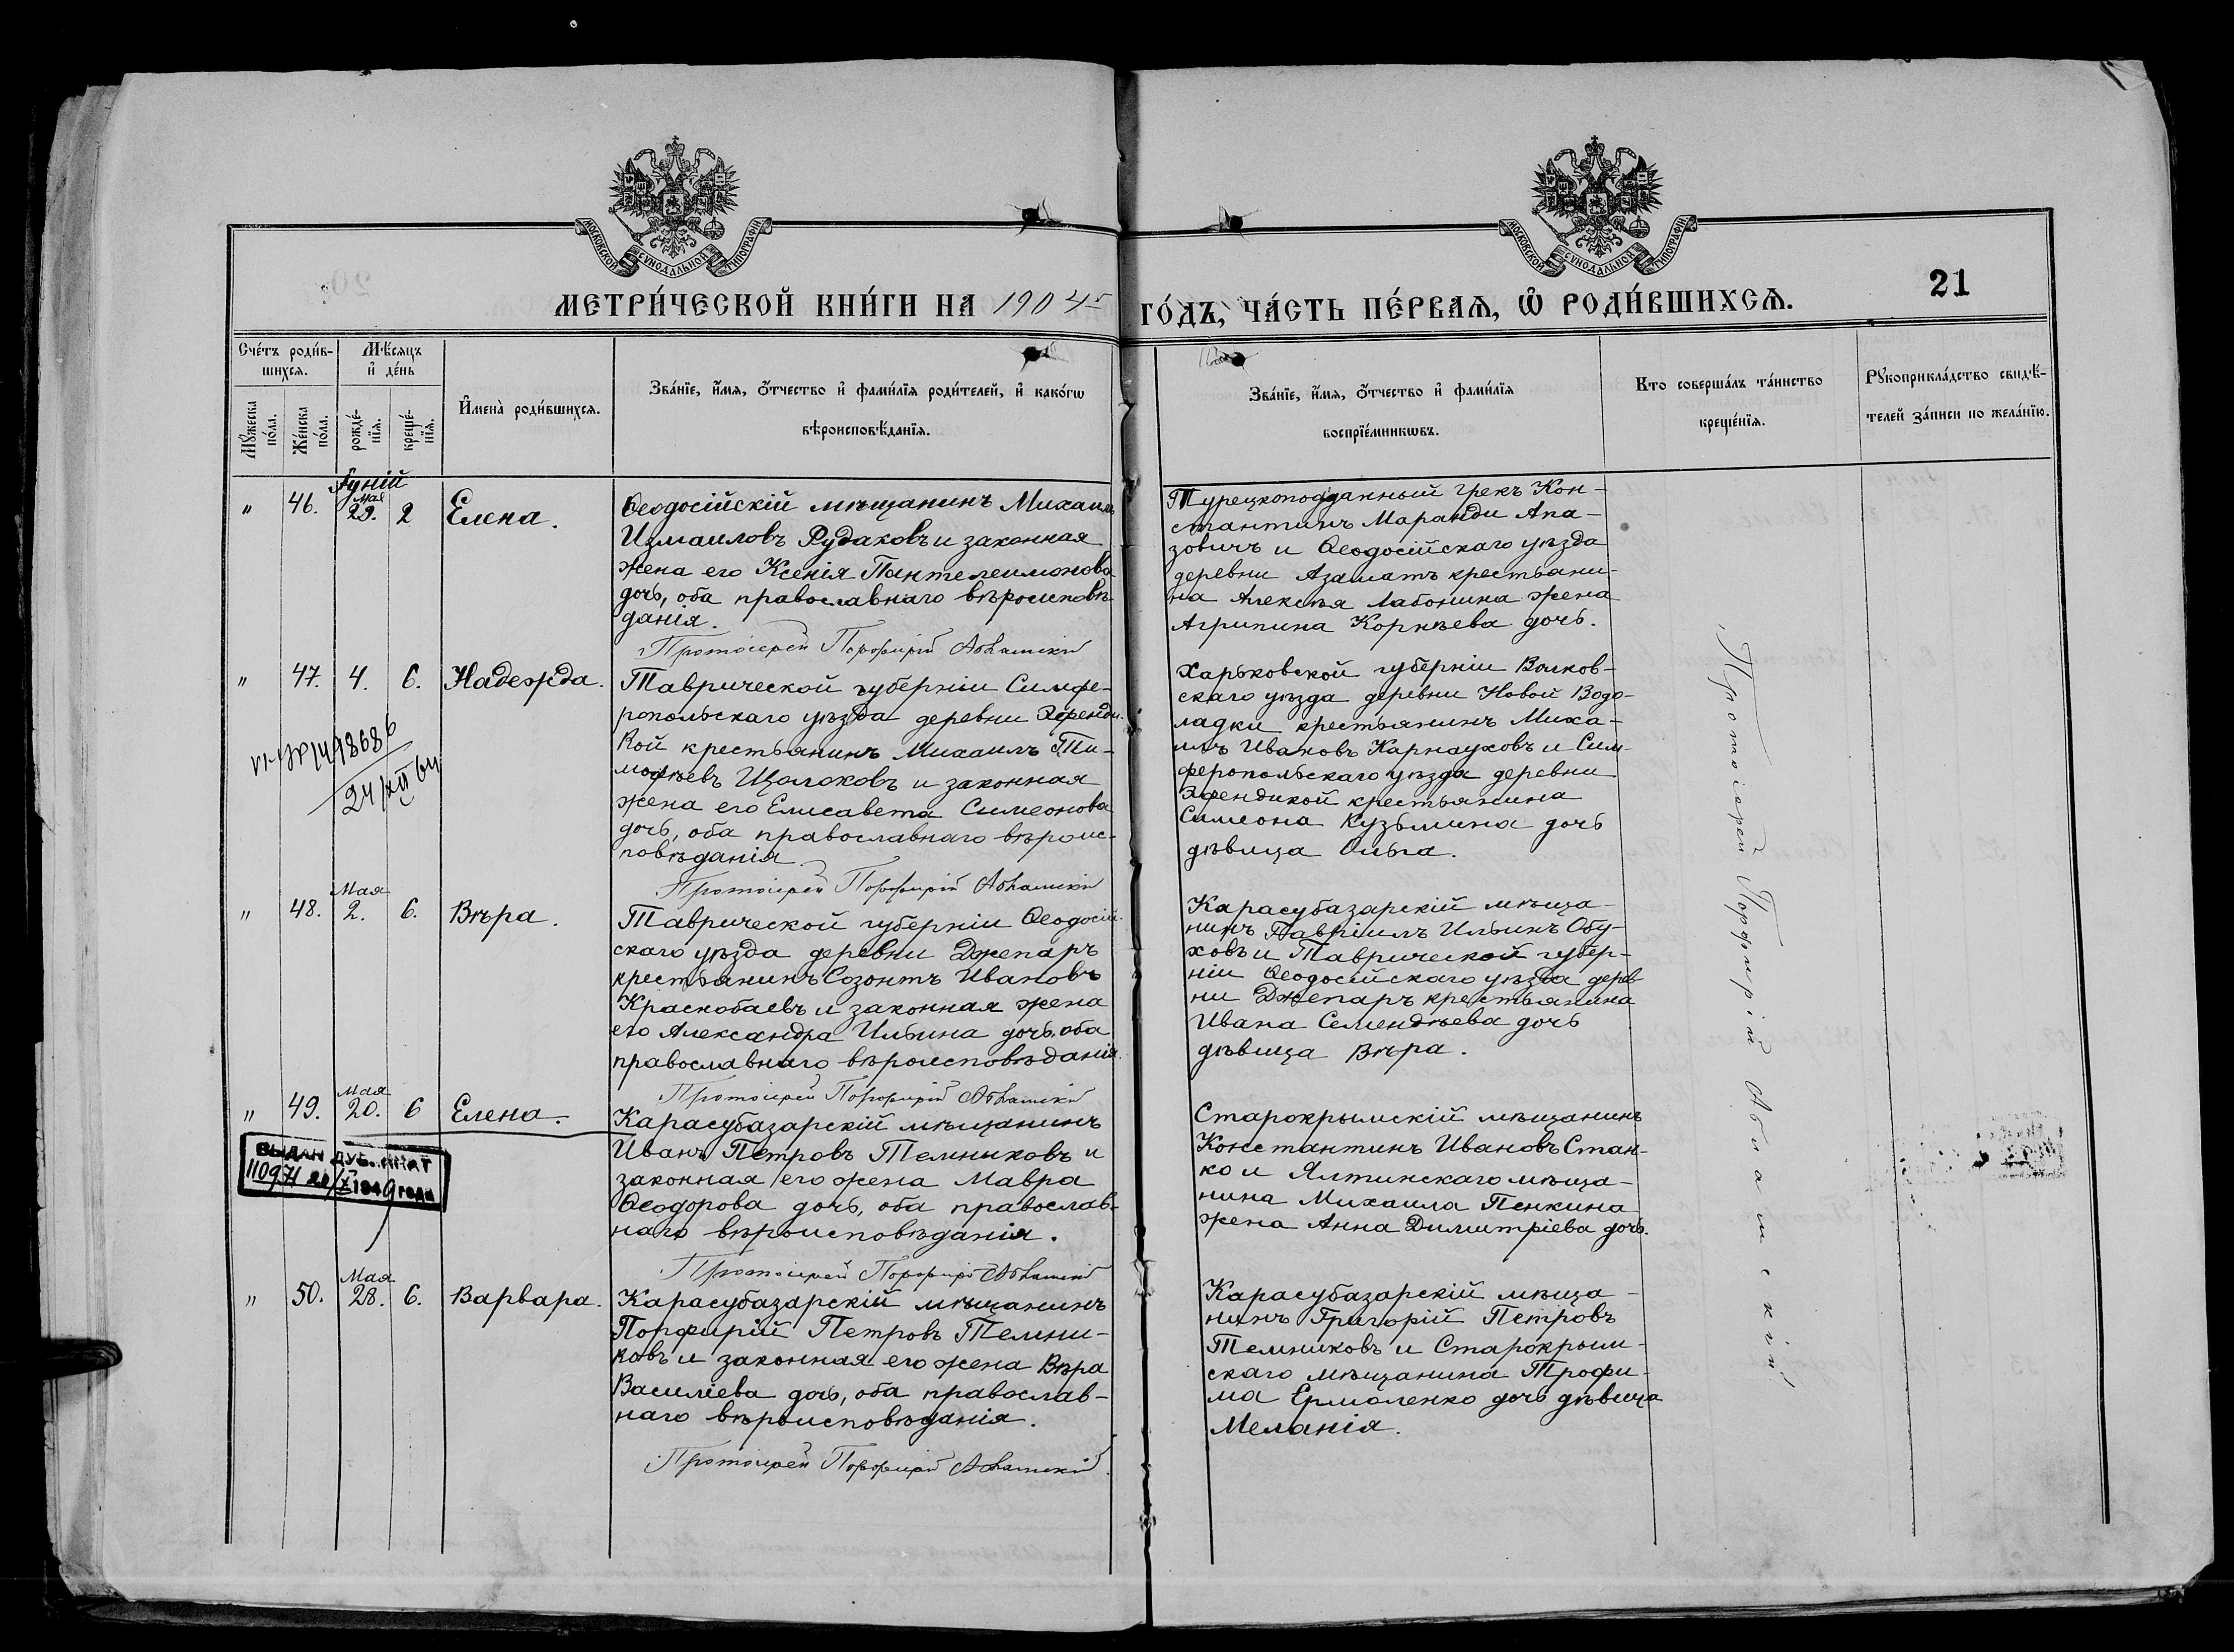 МОСКОВСКОЙ СѴНОДАЛЬНОЙ ТИПОГРАФІИ
МОСКОВСКОЙ СѴНОДАЛЬНОЙ ТИПОГРАФІИ
МЕТРИ́ЧЕСКОЙ КНИ́ГИ НА 1904 ГО́ДЪ, ЧА́СТЬ ПЕ́РВАѦ, Ѽ РОДИ́ВШИХСѦ.
21
Сче́тъ роди́в-
шихсѧ.
Мꙋ́жеска по́ла.
Же́нска по́ла.
Мѣ́сѧцъ и҆ де́нь
рожде́-
нїѧ.
креще́-
нїѧ.
И҆мена̀ роди́вшихсѧ.
Зва́нїе, и҆́мѧ, ѻ҆́тчество и҆ фами́лїѧ роди́телей, и҆ како́гѡ
вѣроисповѣ́данїѧ.
Зва́нїе, и҆́мѧ, ѻ҆́тчество и҆ фами́лїѧ
воспрїе́мникѡвъ.
Кто соверша́лъ та́инство
креще́нїѧ.
Рꙋкоприкла́дство свидѣ́-
телей за́писи по жела́нїю.
Іуній
" 46. Мая 29. 2 Елена.
Ѳеодосійскій мѣщанинъ Михаилъ
Измаиловъ Рудаковъ и законная
жена его Ксенія Пантелеимонова
дочь, оба православнаго вѣроисповѣ-
данія.
Протоіерей Порфирій
Турецкоподданный грекъ Кон-
стантинъ Маранди Апа-
зовичъ и Ѳеодосійскаго уѣзда
деревни Азаматъ крестьяни-
на Алексѣя Лабонина жена
Агрипина Корнѣева дочь.
" 47. 4. 6. Надежда.
Таврической губерніи Симфе-
ропольскаго уѣзда деревни Эфенди-
кой крестьянинъ Михаилъ Ти-
моѳеевъ Щолоковъ и законная
жена его Елисавета Симеонова
дочь, оба православнаго вѣроис-
повѣданія.
Протоіерей Порфирій
Харьковской губерніи Волков-
скаго уѣзда деревни Новой Водо-
ладки крестьянинъ Миха-
илъ Ивановъ Карнауховъ и Сим-
феропольскаго уѣзда деревни
Эфендикой крестьянина
Симеона Кузьмина дочь
дѣвица Ольга.
24/XII 64
" 48. Мая 2. 6. Вѣра.
Таврической губерніи Ѳеодосій-
скаго уѣзда деревни Джепаръ
крестьянинъ Созонтъ Ивановъ
Краснобаевъ и законная жена
его Александра Ильина дочь, оба
православнаго вѣроисповѣданія.
Протоіерей Порфирій
Карасубазарскій мѣща-
нинъ Гавріилъ Ильинъ Обу-
ховъ и Таврической губер-
ніи Ѳеодосійскаго уѣзда дерев-
ни Джепаръ крестьянина
Ивана Семендѣева дочь
дѣвица Вѣра.
" 49. Мая 20. 6 Елена.
Карасубазарскій мѣщанинъ
Иванъ Петровъ Темниковъ и
законная его жена Мавра
Ѳеодорова дочь, оба православ-
наго вѣроисповѣданія.
Протоіерей Порфирій
Старокрымскій мѣщанинъ
Константинъ Ивановъ Стан-
ко и Ялтинскаго мѣща-
нина Михаила Пенкина
жена Анна Димитріева дочь.
ВЫДАН ДУБЛИКАТ
1949 года
" 50. Мая 28. 6. Варвара.
Карасубазарскій мѣщанинъ
Порфирій Петровъ Темни-
ковъ и законная его жена Вѣра
Василіева дочь, оба православ-
наго вѣроисповѣданія.
Протоіерей Порфирій
Карасубазарскій мѣща-
нинъ Григорій Петровъ
Темниковъ и Старокрым-
скаго мѣщанина Трофи-
ма Ермоленко дочь дѣвица
Меланія.
Протоіерей Порфирій